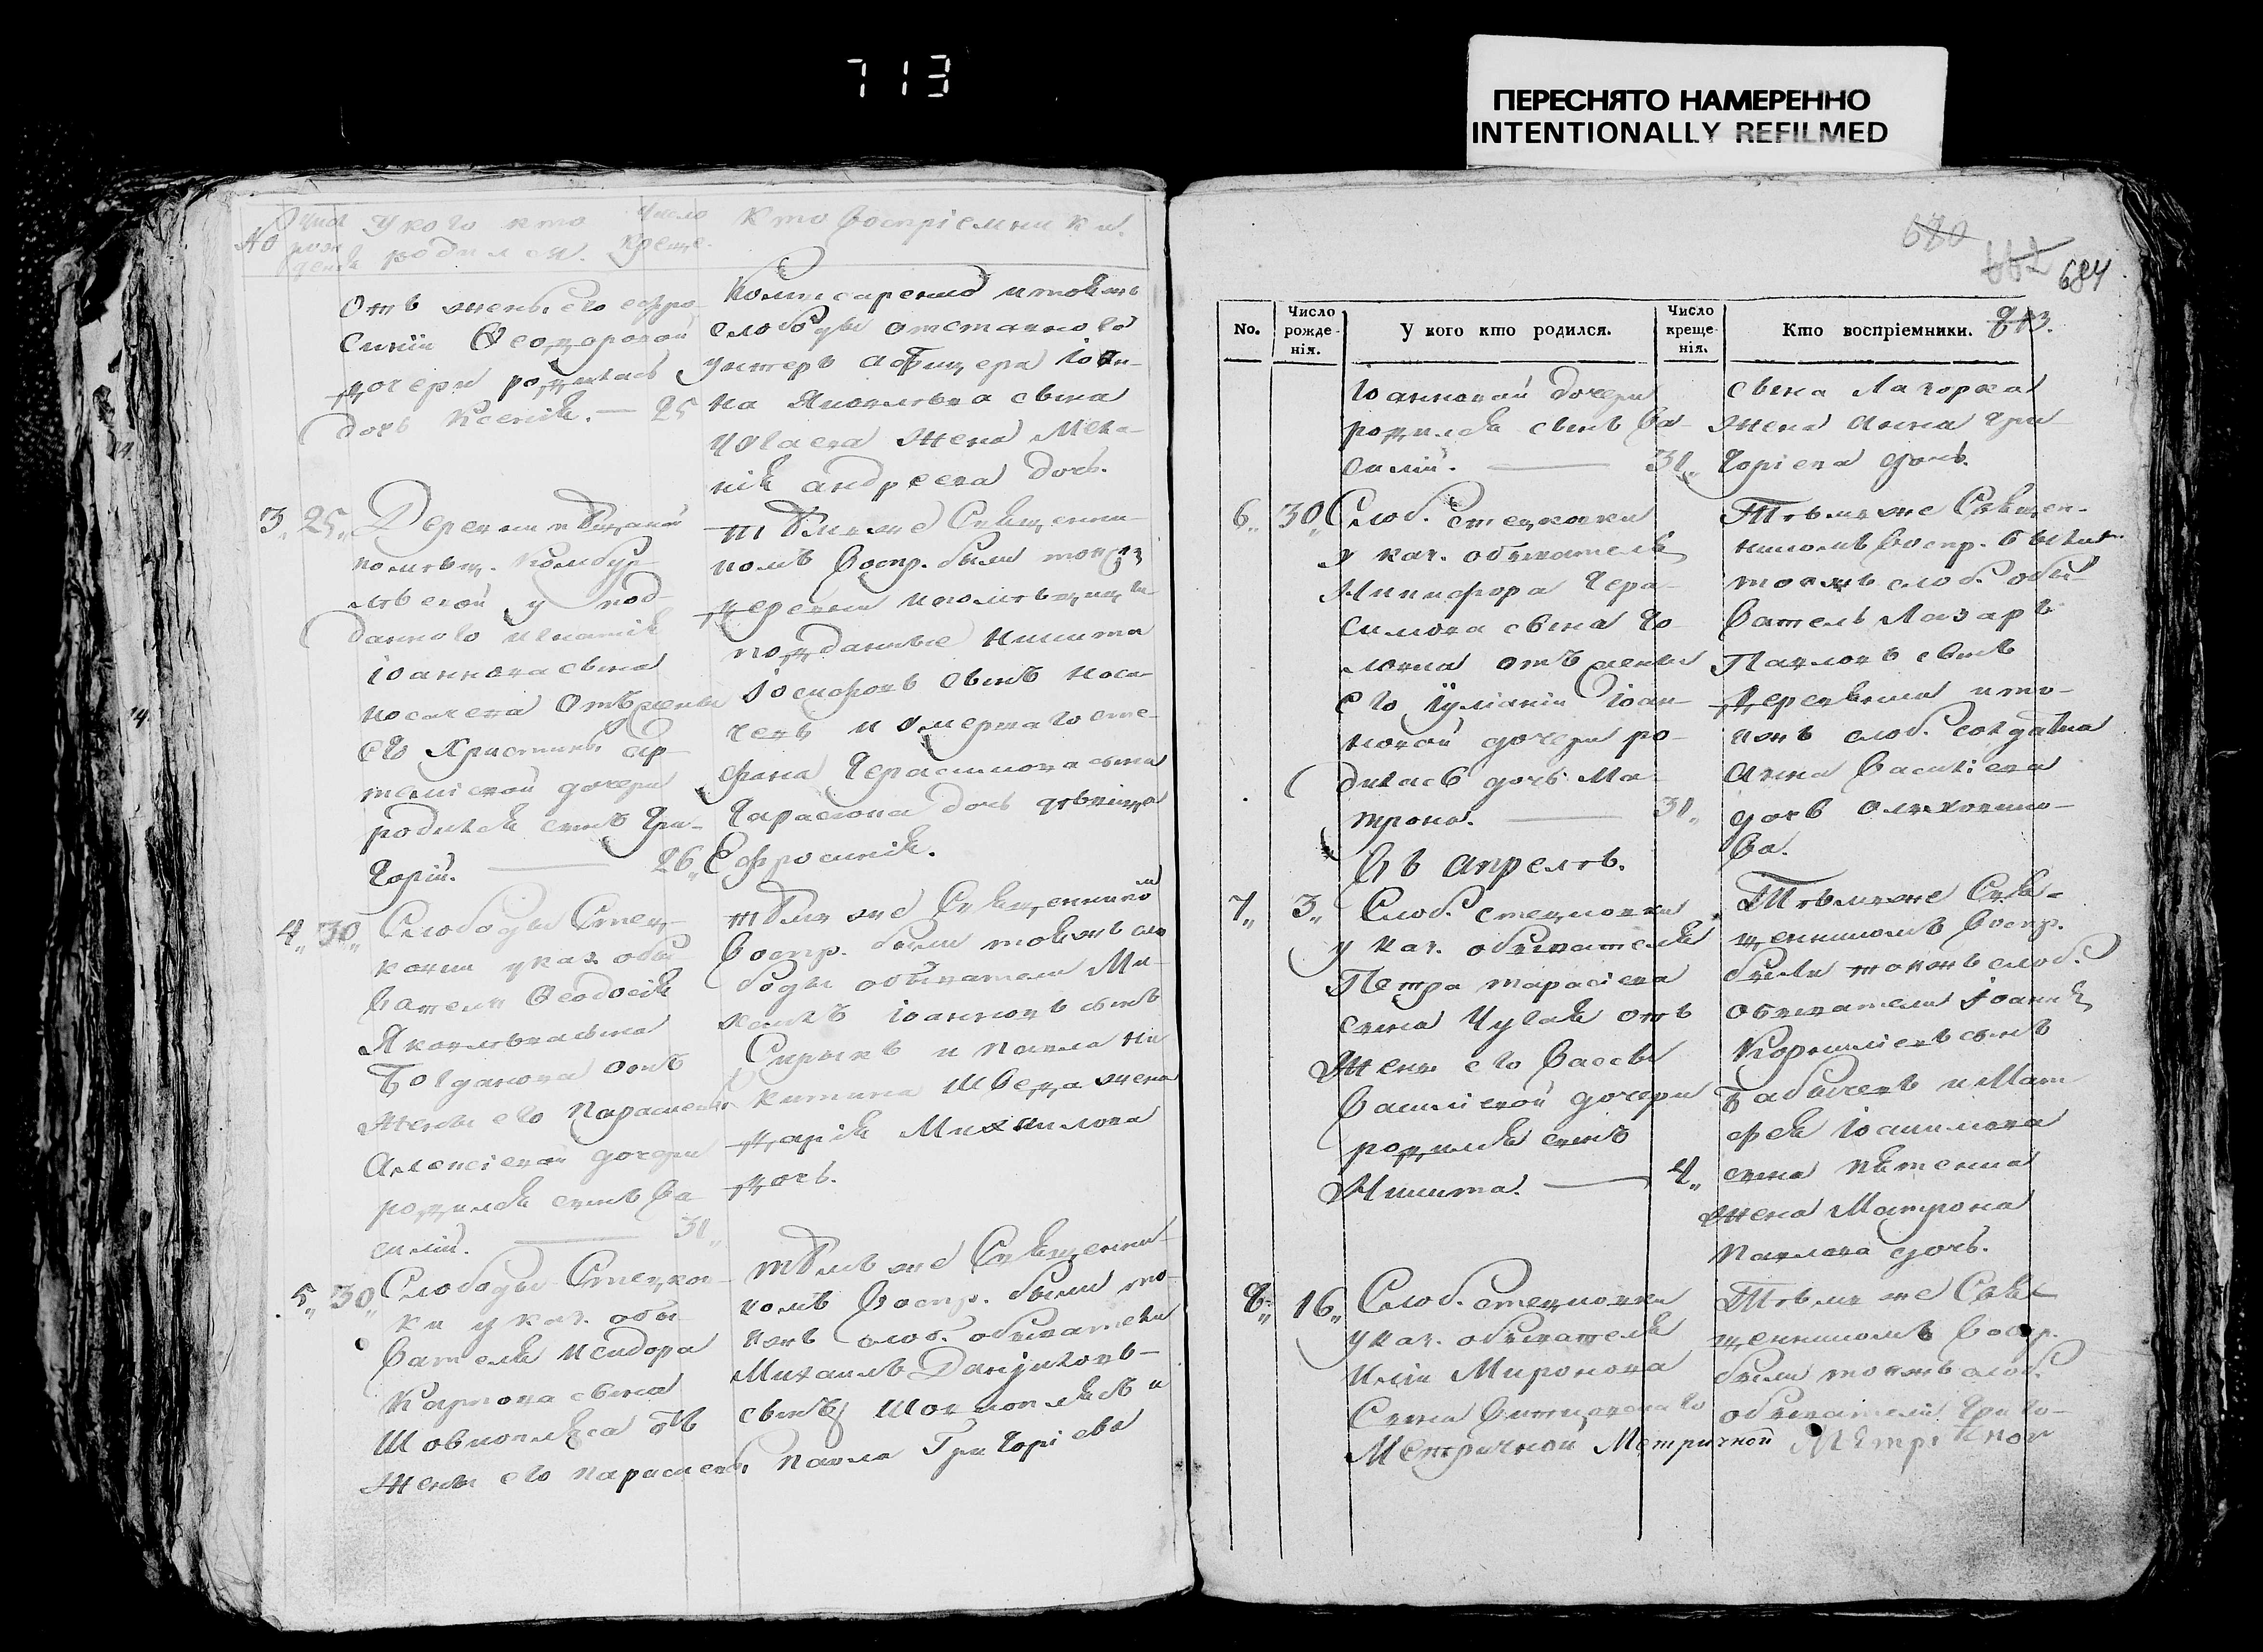 713
ПЕРЕСНЯТО НАМЕРЕННО
INTENTIONALLY REFILMED
No
Число рожденія
У кого кто родился.
Число креще.
Кто воспріемники.
Отъ жены его ефро-
синіи Ѳеодоровой
дочери родилась
дочь Ксенія. — 25
Комисаренко и тоежъ
слободы отставного
унтеръ афицера Іоан-
на Яковлева сына
жена Мела-
нія андреева дочь.
3. 25. Деревни
помѣщ.
у под-
данного игнатія
Іоаннова сына
Носачева Отъ жены
его Христины Ар-
темiевой дочери
родился сынъ Гри-
горій. — 26
тѣмъ же Священни-
комъ воспр. были тойже
деревни и помѣщицы
подданные Никита
Іосифовъ сынъ Носа-
чевъ и умершаго сте-
фана Герасимова сына
Тарасова дочь дѣвица
Ефросинія.
4. 30. Слободы Стец-
ковки у каз. обы-
вателя Ѳеодосія
Яковлева сына
Богданова отъ
жены его Параскевы
Алексіевой дочери
родился сынъ Ва-
силій. — 31
тѣмъ же Священникомъ
воспр. были тоежъ сло
боды обыватели Ми-
хаилъ Іоанновъ сынъ
и Павла Ни
китина Шведа жена
дарія Михаилова
дочь.
5. 30. Слободы Стецков-
ки у каз. обы-
вателя Исидора
Карпова сына
Шовкопляса отъ
жены его параскевы
тѣмъ же Священни-
комъ воспр. были то-
ежъ слоб. обыватели
Михаилъ Даніиловъ
сынъ Шовкоплясъ и
Павла Григоріева
680
662
684
813.
No.
Число рожде-нія.
У кого кто родился.
Число креще-нія.
Кто воспріемники.
Іоанновой дочери
родился сынъ Ва-
силій. — 31
сына Лазорка
жена Анна Гри
горіева дочь.
6. 30 Слоб. стецковки
у каз. обывателя
Никифора Гера-
симова сына Го-
ловна отъ жены
его Іуліаніи Іоан-
новой дочери ро-
дилась дочь Ма-
трона. — 31
Тѣмъ же Священ-
никомъ воспр. были
тоежъ слоб. обы-
ватель Лазарь
Павловъ сынъ
и то-
ежъ слоб. солдатка
Анна Васильева
дочь
ва.
Въ апрелѣ.
7. 3. Слоб. стецковки
у каз. обывателя
Петра тарасіева
сына Чугая отъ
жены его Вассы
Василіевой дочери
родился сынъ
Никита. — 4
Тѣмъ же Свя-
щенникомъ воспр.
были тоежъ слоб.
обыватели Іоаннъ
Корниліевъ сынъ
и Мат
фея Іоакимова
сына Пятенка
жена Матрона
Павлова дочь.
8. 16. Слоб. стецковки
у каз. обывателя
Иліи Миронова
Сына
Тѣмъ же Свя-
щенникомъ воспр.
были тоежъ слоб.
обыватели Григо-
Метричной Метричной